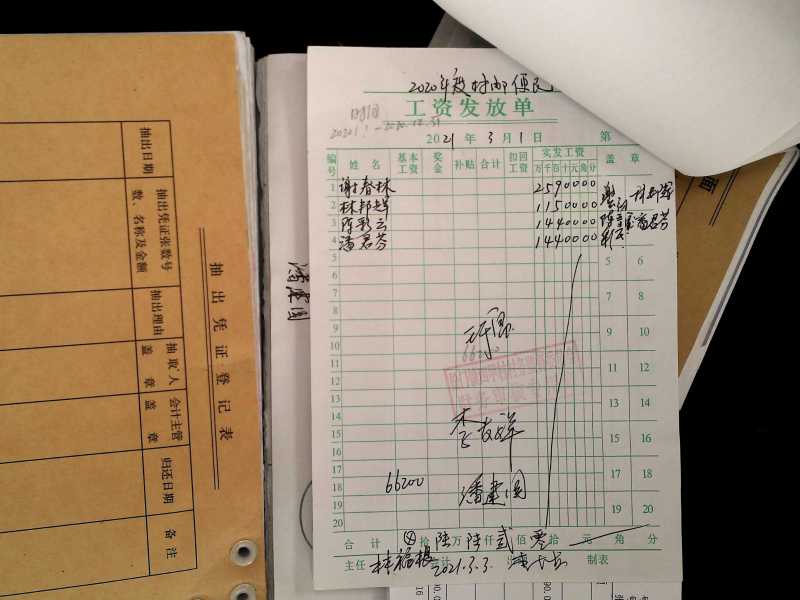 2020年度村邮便民
工资发放单
时间
2021年3月1日 第
编号 姓名 基本工资 奖金 补贴 合计 扣回工资 实发工资 盖章
万千百十元角分
1 谢春林 2590000
2 林邦辉 1150000
3 陈彩云 1440000
4 潘君芬 1440000
5 5 6
6
7 7 8
8
9 9 10
10
11 11 12
12
13 13 14
14
15 15 16
16
17 17 18
18 66200
19 19 20
20
李友祥
潘建国
合计 拾陆万陆仟贰佰零拾 元 角 分
主任 林福根 会计 2021.3.3. 制表
潘建国
抽出凭证登记表
抽出日期
抽出凭证张数号数、名称及金额
抽出理由
抽取人盖章
会计主管盖章
归还日期
备注
面